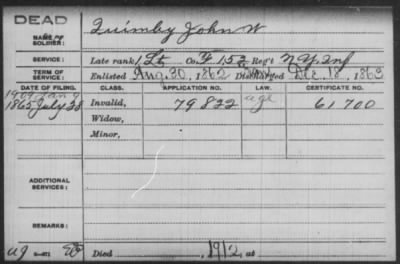 DEAD
NAME OF SOLDIER: Quimby John W
SERVICE: Late rank 1 Lt Co. F 153 Reg't N.Y. Inf
TERM OF SERVICE: Enlisted Aug. 30, 1862 Discharged Dec. 18, 1863
DATE OF FILING. CLASS. APPLICATION NO. LAW. CERTIFICATE NO.
1907
1865 July 28 Invalid, 79822 age 61700
Widow,
Minor,
ADDITIONAL SERVICES:
REMARKS:
Died 1912, at